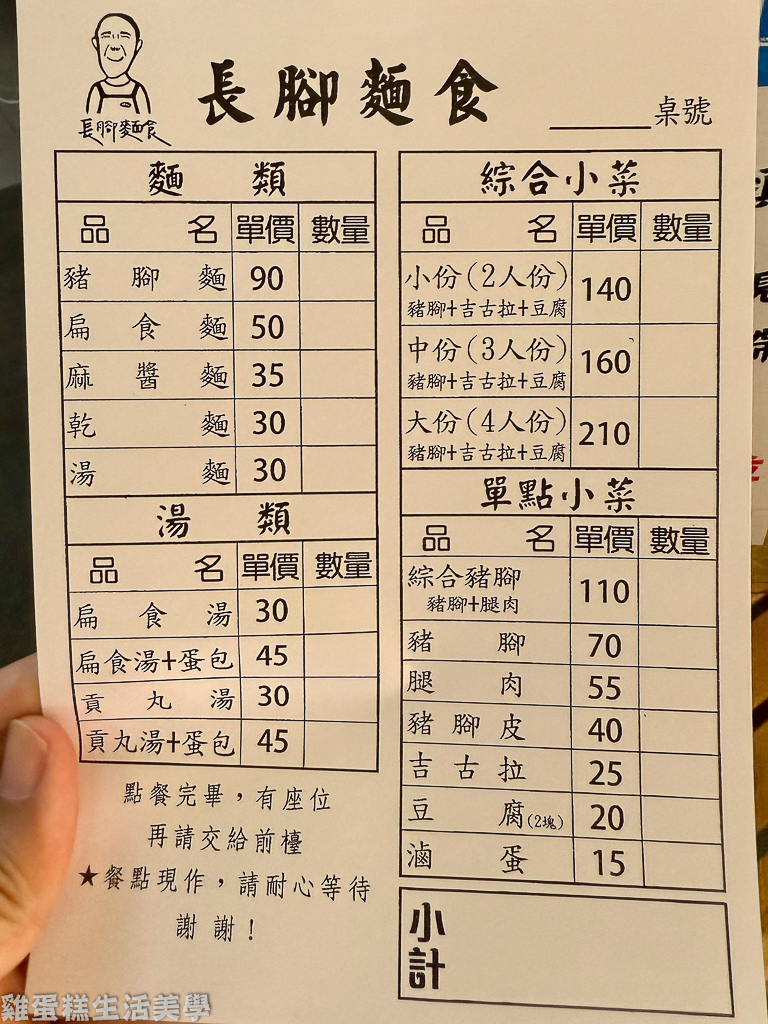 長腳麵食
長腳麵食
桌號
麵類
品名 單價 數量
豬腳麵 90
扁食麵 50
麻醬麵 35
乾麵 30
湯麵 30
湯類
品名 單價 數量
扁食湯 30
扁食湯+蛋包 45
貢丸湯 30
貢丸湯+蛋包 45
點餐完畢，有座位
再請交給前檯
★餐點現作，請耐心等待
謝謝！
綜合小菜
品名 單價 數量
小份(2人份) 140
豬腳+吉古拉+豆腐
中份(3人份) 160
豬腳+吉古拉+豆腐
大份(4人份) 210
豬腳+吉古拉+豆腐
單點小菜
品名 單價 數量
綜合豬腳 110
豬腳+腿肉
豬腳 70
腿肉 55
豬腳皮 40
吉古拉 25
豆腐(2塊) 20
滷蛋 15
小計
雞蛋糕生活美學